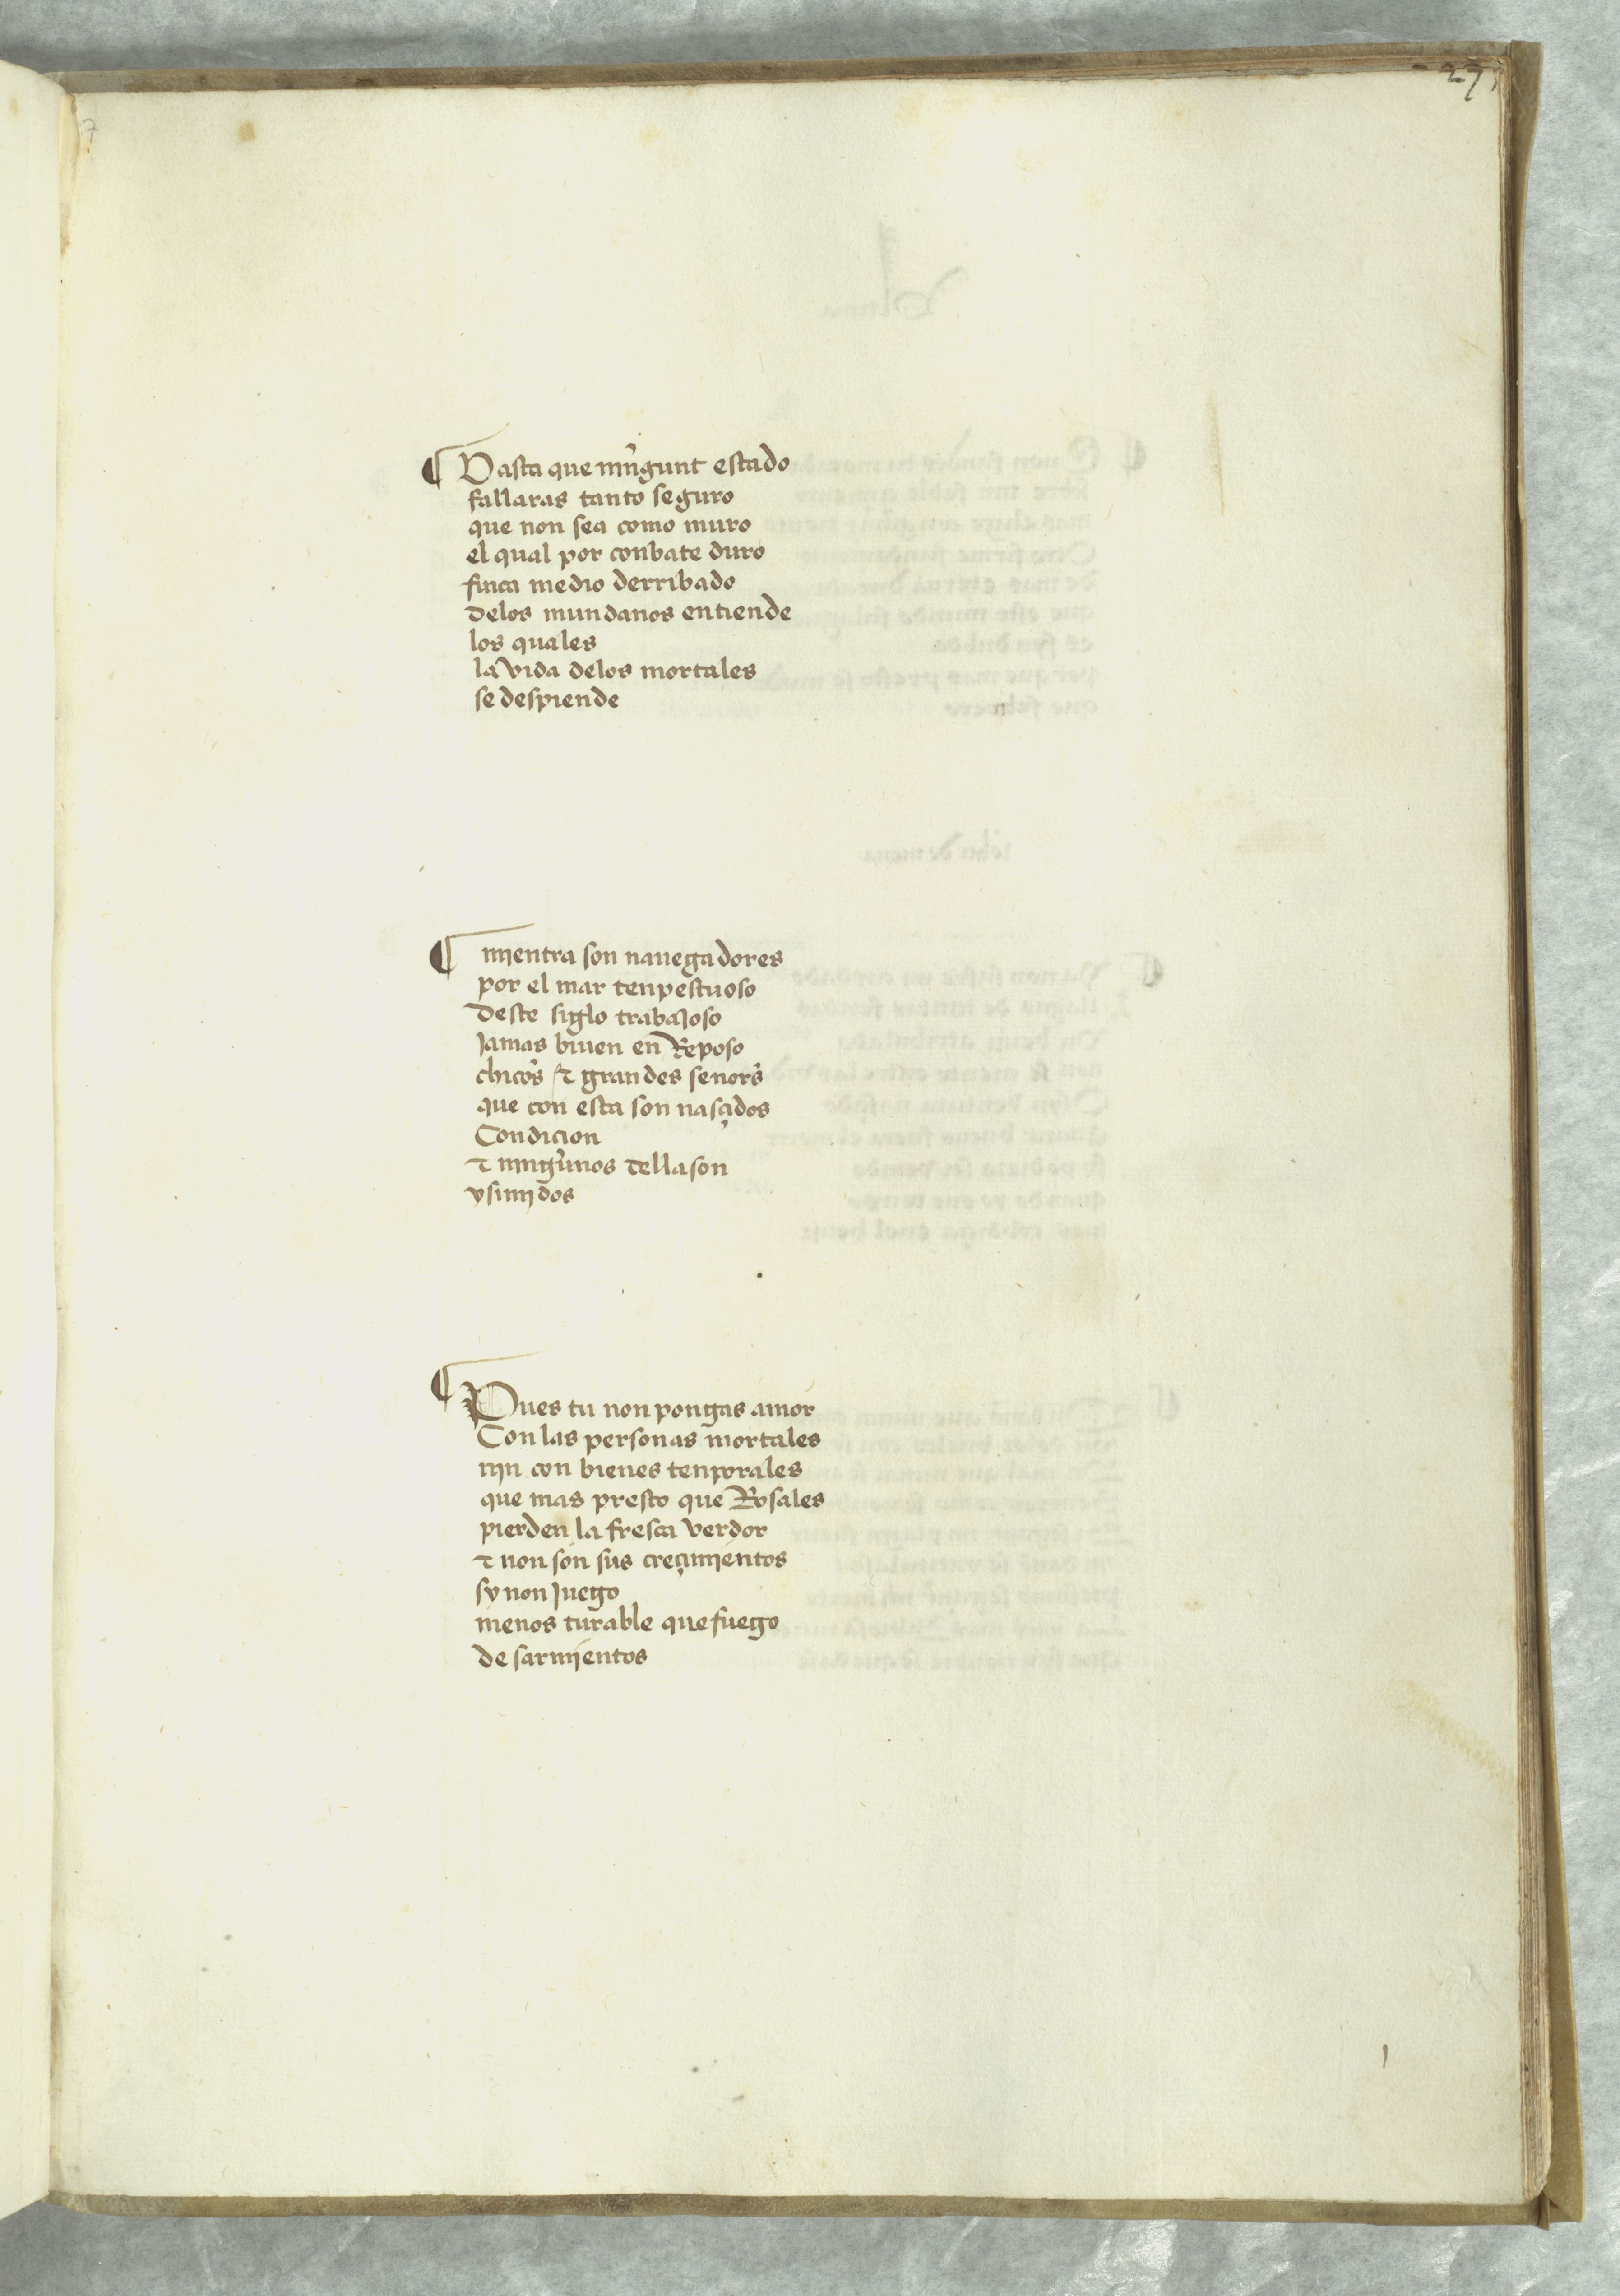 27
7
¶ Basta que ningunt estado
fallaras tanto seguro
que non sea como muro
el qual por conbate duro
finca medio derribado
delos mundanos entiende
los quales
la vida delos mortales
se despiende
¶ mientra son nauegadores
por el mar tenpestuoso
deste siglo trabajoso
jamas biuen en Reposo
chicos τ grandes senors
que con esta son nasçidos
Condicion
τ ningunos della son
Pues tu non pongas amor
Con las personas mortales
nin con bienes tenporales
que mas presto que Rosales
pierden la fresca verdor
τ non son sus creçimientos
sy non juego
menos turable que fuego
de sarmientos